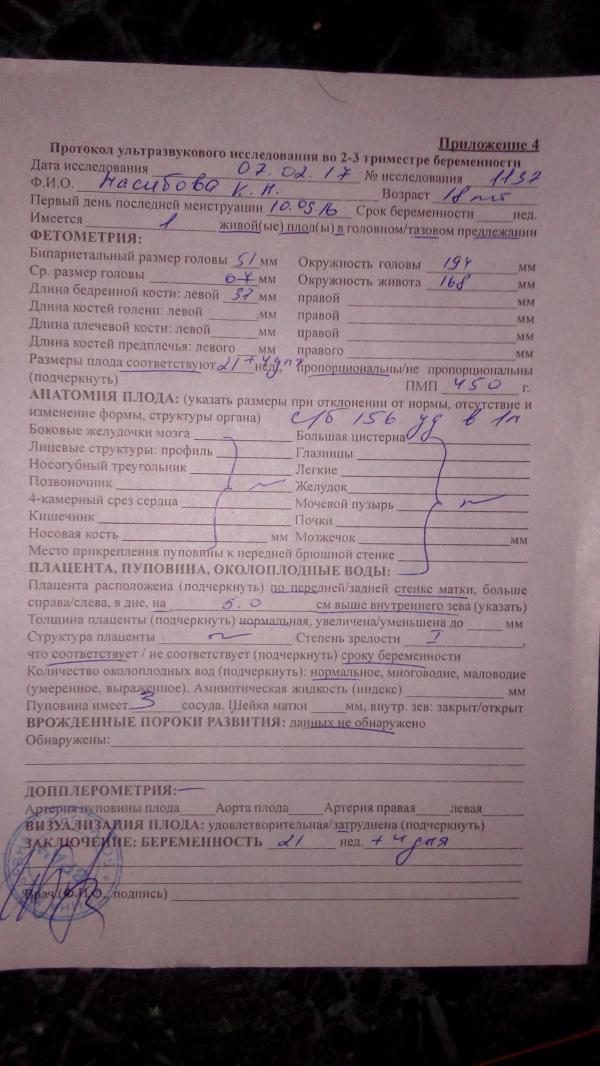 Приложение 4
Протокол ультразвукового исследования во 2-3 триместре беременности
Дата исследования 07.02.17 № исследования 1137
Ф.И.О. Насибова К. Н. Возраст 18 лет
Первый день последней менструации 10.09.16 Срок беременности нед.
Имеется 1 живой(ые) плод(ы) в головном/тазовом предлежании
ФЕТОМЕТРИЯ:
Бипариетальный размер головы 51 мм Окружность головы 194 мм
Ср. размер головы 64 мм Окружность живота 168 мм
Длина бедренной кости: левой 37 мм правой мм
Длина костей голени: левой мм правой мм
Длина плечевой кости: левой мм правой мм
Длина костей предплечья: левого мм правого мм
Размеры плода соответствуют 21 + 4 дня нед., пропорциональны/не пропорциональны
(подчеркнуть) ПМП 450 г.
АНАТОМИЯ ПЛОДА: (указать размеры при отклонении от нормы, отсутствие и
изменение формы, структуры органа) с/б 156 уд в 1м
Боковые желудочки мозга Большая цистерна
Лицевые структуры: профиль Глазницы
Носогубный треугольник Легкие
Позвоночник Желудок
4-камерный срез сердца Мочевой пузырь
Кишечник Почки
Носовая кость мм Мозжечок мм
Место прикрепления пуповины к передней брюшной стенке
ПЛАЦЕНТА, ПУПОВИНА, ОКОЛОПЛОДНЫЕ ВОДЫ:
Плацента расположена (подчеркнуть) по передней/задней стенке матки, больше
справа/слева, в дне, на 5.0 см выше внутреннего зева (указать)
Толщина плаценты (подчеркнуть) нормальная, увеличена/уменьшена до мм
Структура плаценты Степень зрелости I ,
что соответствует / не соответствует (подчеркнуть) сроку беременности
Количество околоплодных вод (подчеркнуть): нормальное, многоводие, маловодие
(умеренное, выраженное). Амниотическая жидкость (индекс) мм
Пуповина имеет 3 сосуда. Шейка матки мм, внутр. зев: закрыт/открыт
ВРОЖДЕННЫЕ ПОРОКИ РАЗВИТИЯ: данных не обнаружено
Обнаружены:
ДОППЛЕРОМЕТРИЯ:
Артерия пуповины плода Аорта плода Артерия правая левая
ВИЗУАЛИЗАЦИЯ ПЛОДА: удовлетворительная/затруднена (подчеркнуть)
ЗАКЛЮЧЕНИЕ: БЕРЕМЕННОСТЬ 21 нед. + 4 дня
Врач (Ф.И.О., подпись)